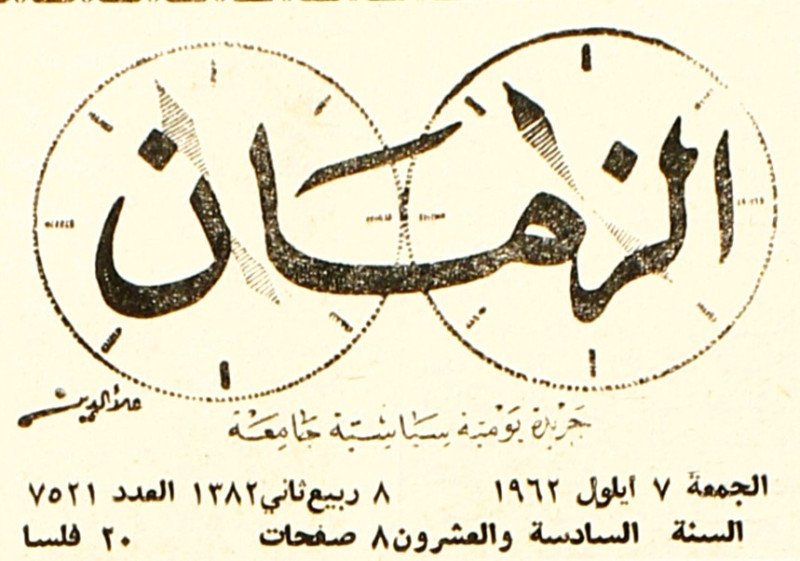 الزمان
علاءالدين
جريدة يومية سياسية جامعة
الجمعة ٧ ايلول ١٩٦٢ ٨ ربيع ثاني ١٣٨٢ العدد ٧٥٢١
السنة السادسة والعشرون ٨ صفحات ٢٠ فلسا